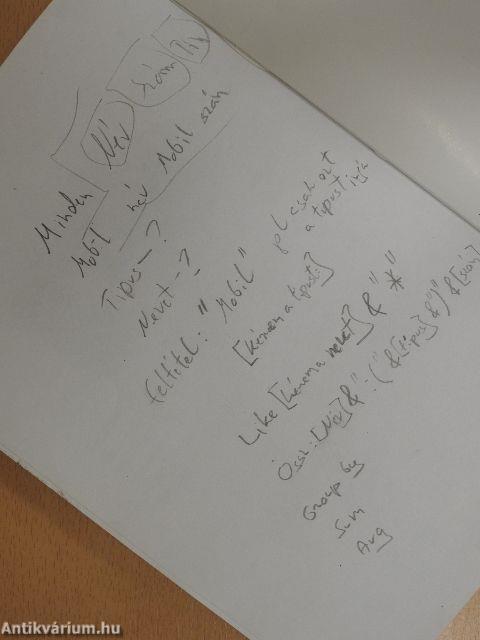 Minden Név szám
Mobil név Mobil szám
Tipus - ?
Nevet - ?
feltétel: "Mobil" pl csak azt
a tipust írja
[kérem a tipust:]
Like [kérem a nevet] & "*"
Össz: [Név] & "-(" & [tipus] & ")" & [szám]
Group by
Sum
Avg
Antikvárium.hu